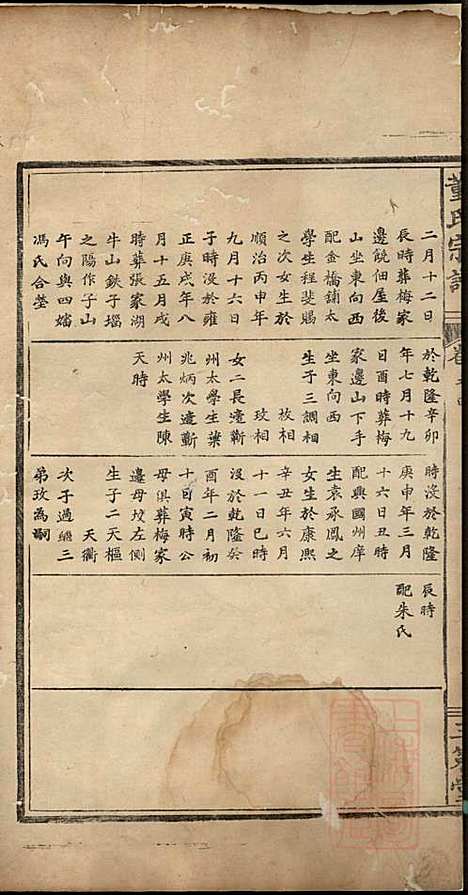 董氏宗譜
二月十二日
辰時葬梅家
邊饒佃屋後
山坐東向西
配金橋鋪太
學生程斐賜
之次女生於
順治丙申年
九月十六日
子時沒於雍
正庚戌年八
月十五月戌
時葬張家湖
牛山鉄子堖
之陽作子山
午向與四嬸
馮氏合塋
於乾隆辛卯
年七月十九
日酉時葬梅
家邊山下手
坐東向西
生子三調相
枚相
玫相
女二長適蘄
州太學生葉
兆炳次適蘄
州太學生陳
天時
時沒於乾隆
庚申年三月
十六日丑時
配興國州庠
生袁承鳳之
女生於康熙
辛丑年六月
十一日巳時
沒於乾隆癸
酉年二月初
十日寅時公
母俱葬梅家
邊母坟左側
生子二天樞
天衢
次子過繼三
弟玫為嗣
辰時
配朱氏